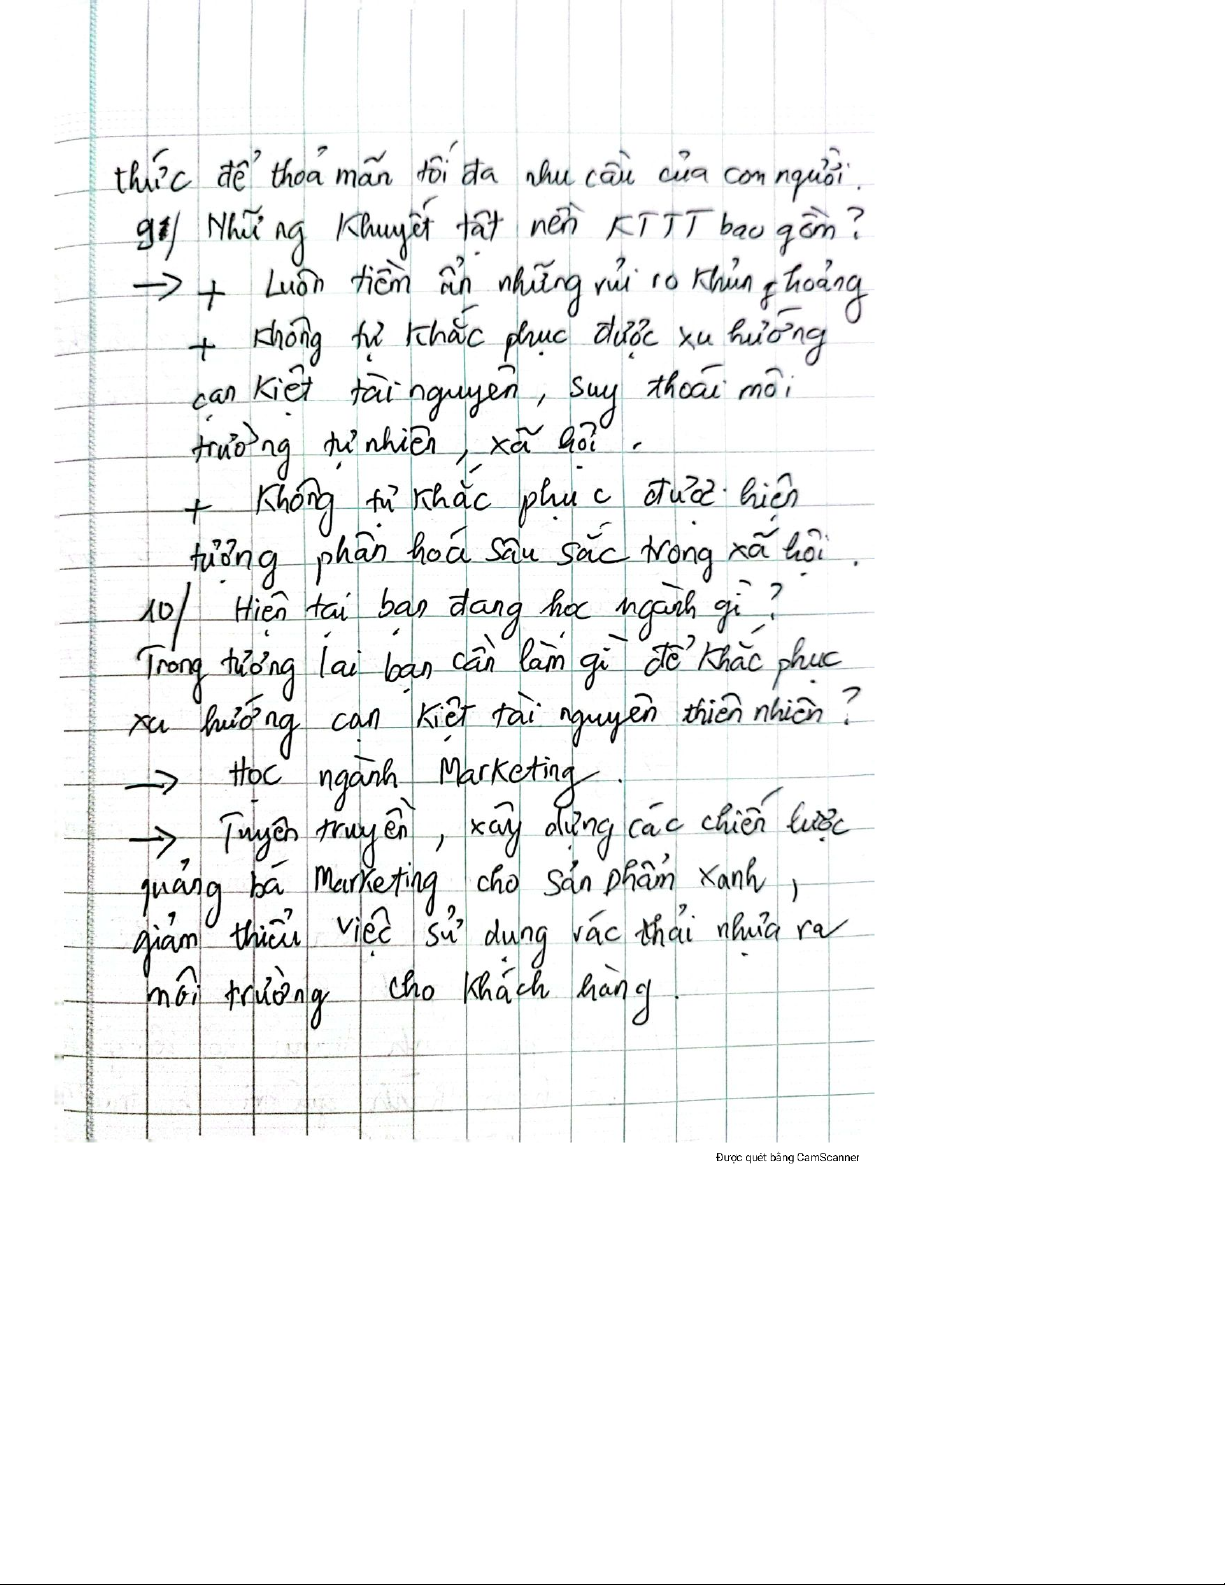 thức để thoả mãn tối đa nhu cầu của con người.
9/ Những khuyết tật nền KTTT bao gồm?
→ + Luôn tiềm ẩn những rủi ro khủng hoảng
+ Không tự khắc phục được xu hướng
cạn kiệt tài nguyên, suy thoái môi
trường tự nhiên, xã hội.
+ Không tự khắc phục được hiện
tượng phân hoá sâu sắc trong xã hội.
10/ Hiện tại bạn đang học ngành gì?
Trong tương lai bạn cần làm gì để khắc phục
xu hướng cạn kiệt tài nguyên thiên nhiên?
→ Học ngành Marketing.
→ Tuyên truyền, xây dựng các chiến lược
quảng bá Marketing cho sản phẩm xanh,
giảm thiểu việc sử dụng rác thải nhựa ra
môi trường cho khách hàng.
Được quét bằng CamScanner